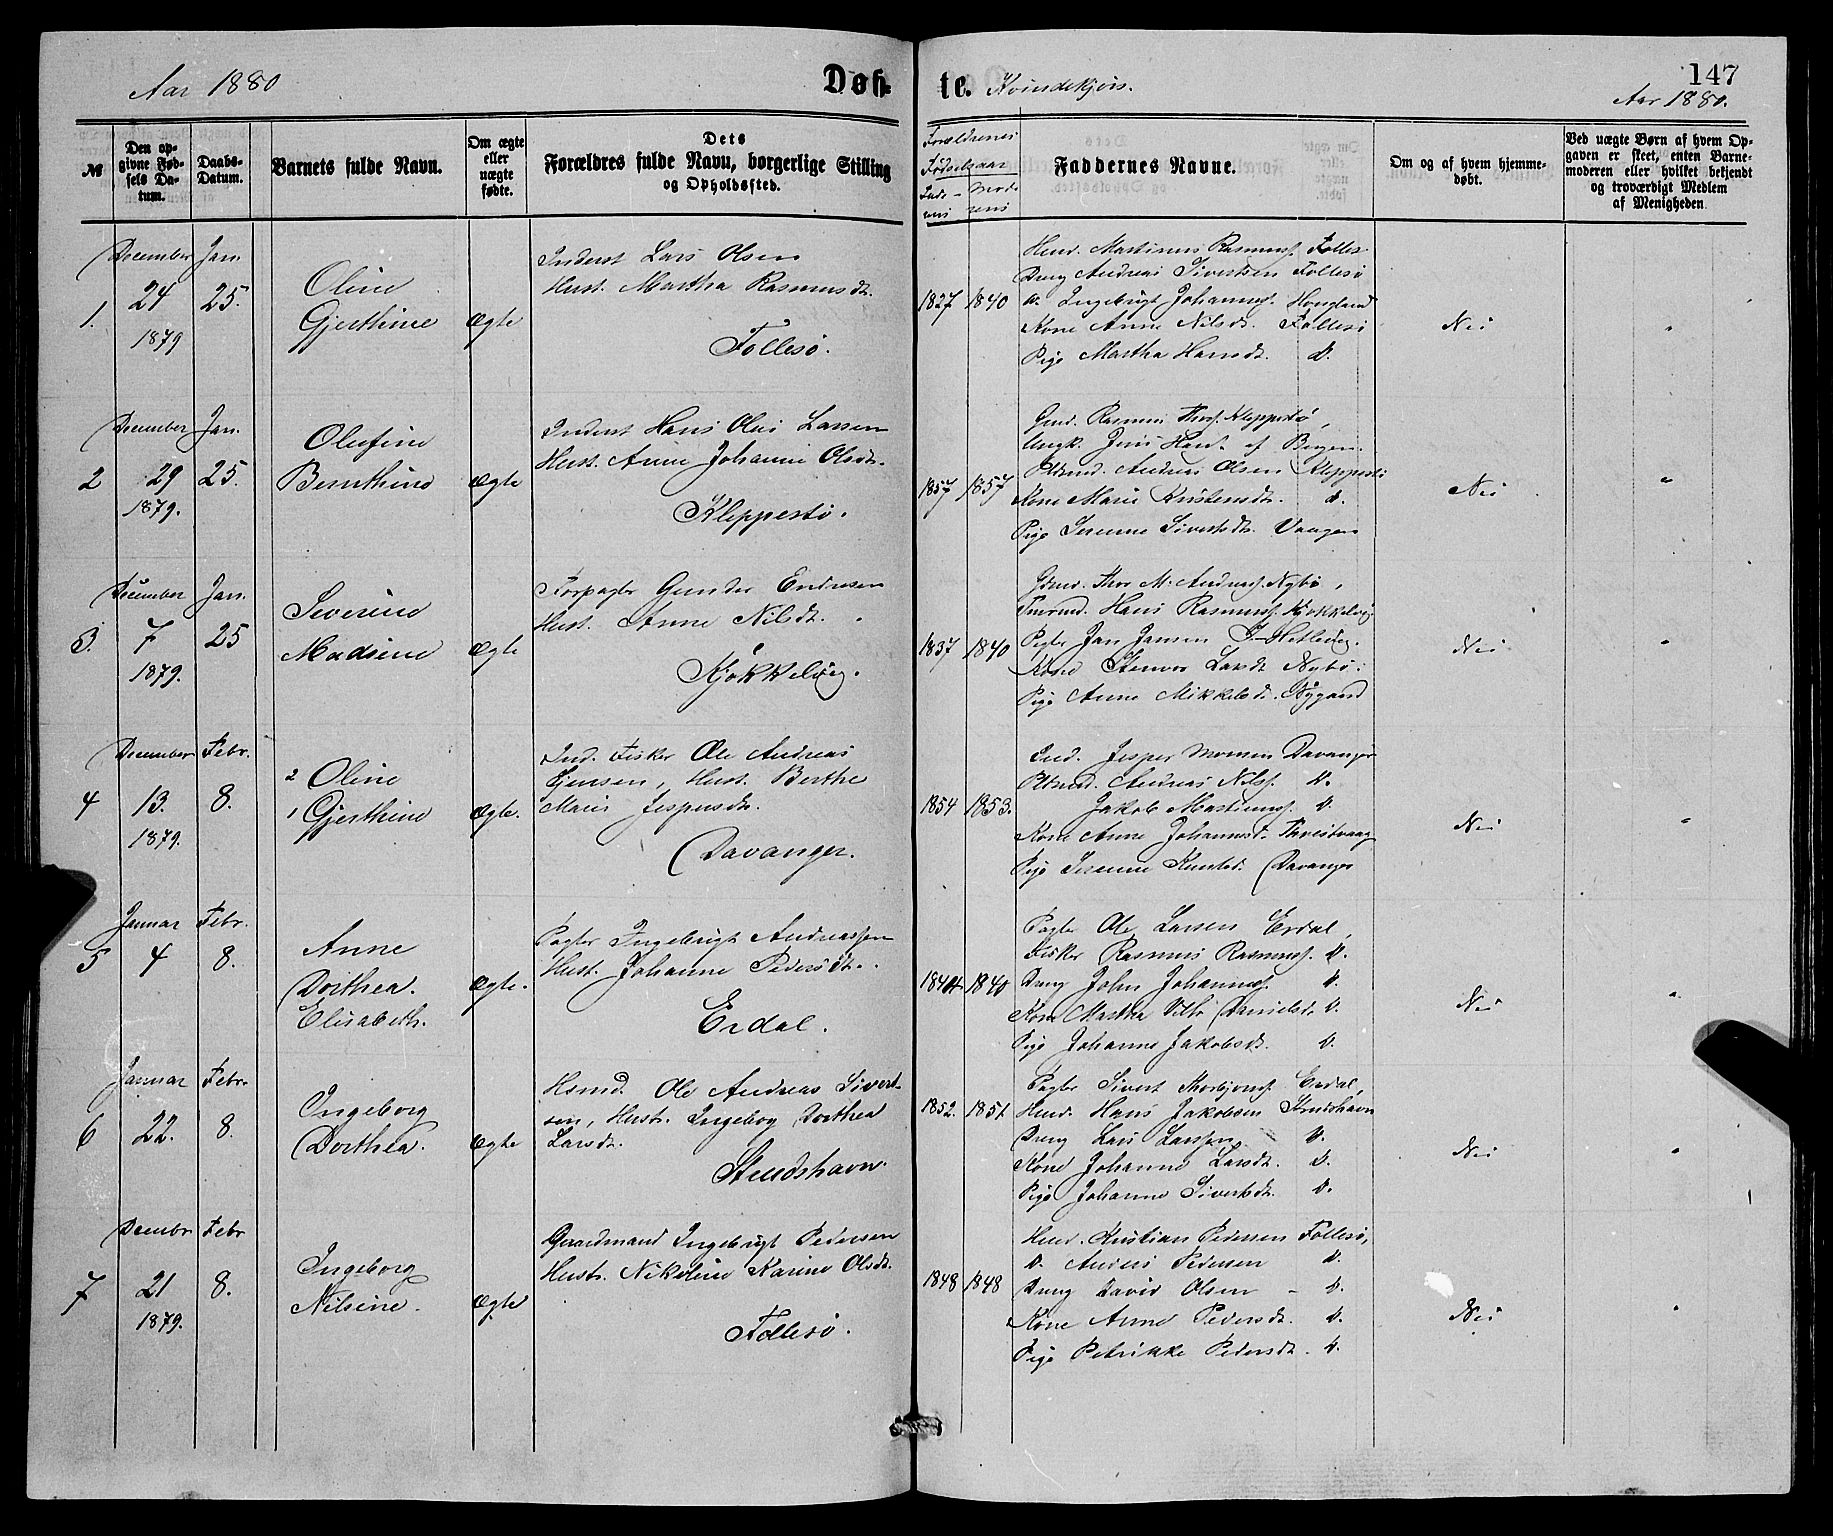 Aar 1880
Døb-
te. Kvindekjøn.
147
Aar 1880.
№
Den op-
givne Fød-
sels Da-
tum.
Daabs-
Datum.
Barnets fulde Navn.
Om ægte
eller
uægte
fødte.
Dets
Forældres fulde Navn, borgerlige Stilling
og Opholdssted.
Forældrenes
Fødselsaar
Fade-
rens
Mode-
rens
Faddernes Navne.
Om og af hvem hjemme-
døbt.
Ved uægte Børn af hvem Op-
gaven er skeet, enten Barne-
moderen eller hvilket bekjendt
og troværdigt Medlem
af Menigheden.
1.
December
24
1879
Jan.
25.
Oline
Gjerthine
Ægte
Inderst Lars Olsen
Hust. Martha Rasmusdt.
Follesø.
1827 1840
Husd. Martinus Rasmuss. Folles
Dreng Andreas Sivertsen Follesø
D. Ingebrigt Johanness. Hougland
Kone Anne Nilsdt. Follesø
Pige Martha Hansdt. D.
Nei
"
2
December
29
1879.
Jan.
25.
Olufine
Bernthine
Ægte
Inderst Hans Olai Larsen
Hust. Anne Johanne Olsdt.
Kleppestø.
1857 1857
Gmd. Rasmus Thos. Kleppestø,
af Bergen
Andreas Olsen Kleppestø
Kone Marie Kristensdt. D.
Pige Serenne Sivertsdt. Vaagen
Nei
"
3.
December
7
1879.
Jan.
25
Severine
Madsine
Ægte
Forpagter Gunder Endresen
Hust. Anne Nilsdt.
Kjøkkelvig.
1837 1840
Gmd. Thor M. Andreass. Nybø,
Hans Rasmuss. Kjøkkelvig
Pagter Jan Jansen I. Hetlevig.
Kone Stenvor Larsdt Nybø.
Pige Anne Mikkelsdt. Nygaard
Nei
"
4
December
13.
1879.
Febr.
8.
2 Oline
1 Gjerthine
Ægte.
Ind. Fisker Ole Andreas
Ejensen, Hust. Berthe
Marie Jespersdt.
Davanger.
1854 1853.
Ind. Jesper Monsen Davanger
Andreas Nilss. D.
Jakob Martinuss. D.
Kone Anne Johannesd. Thveitvaag
Pige Serenne Knutsd. Davanger
Nei
"
5
Januar
4
Febr.
8.
Anne
Dorthea.
Elisabeth.
Ægte.
Pagter Ingebrigt Andreassen
Hust. Johanne Pedersdt.
Erdal.
1840 1840
Pagter Ole Larsen Erdal,
Fisker Rasmus Rasmuss. D.
Dreng John Johanness. D.
Kone Martha Danielsd. D.
Pige Johanne Jakobsdt. D.
Nei
"
6
Januar
22.
Febr.
8.
Ingeborg
Dorthea.
Ægte
Hsmd. Ole Andreas Sivert-
sen, Hustr. Ingeborg Dorthea
Larsdt.
Strudshavn.
1852. 1851
Pagter Sivert Thorbjørns. Erdal,
Husd. Hans Jakobsen Strudshavn
Dreng Lars Larssen D.
Kone Johanne Larsdt. D.
Pige Johanne Sivertsdt. D.
Nei
"
7
Decembr
21
1879.
Febr
8.
Ingeborg
Nilsine.
Ægte
Gaardmand Ingebrigt Pedersen
Hustr. Nikoline Karine Olsdt.
Follesø.
1848 1848
Husd. Kristian Pedersen Follesø,
D. Anders Pedersen D.
Dreng David Olsen - D.
Kone Anne Pedersdt. D.
Pige Petrikke Pedersdt. D.
Nei
"